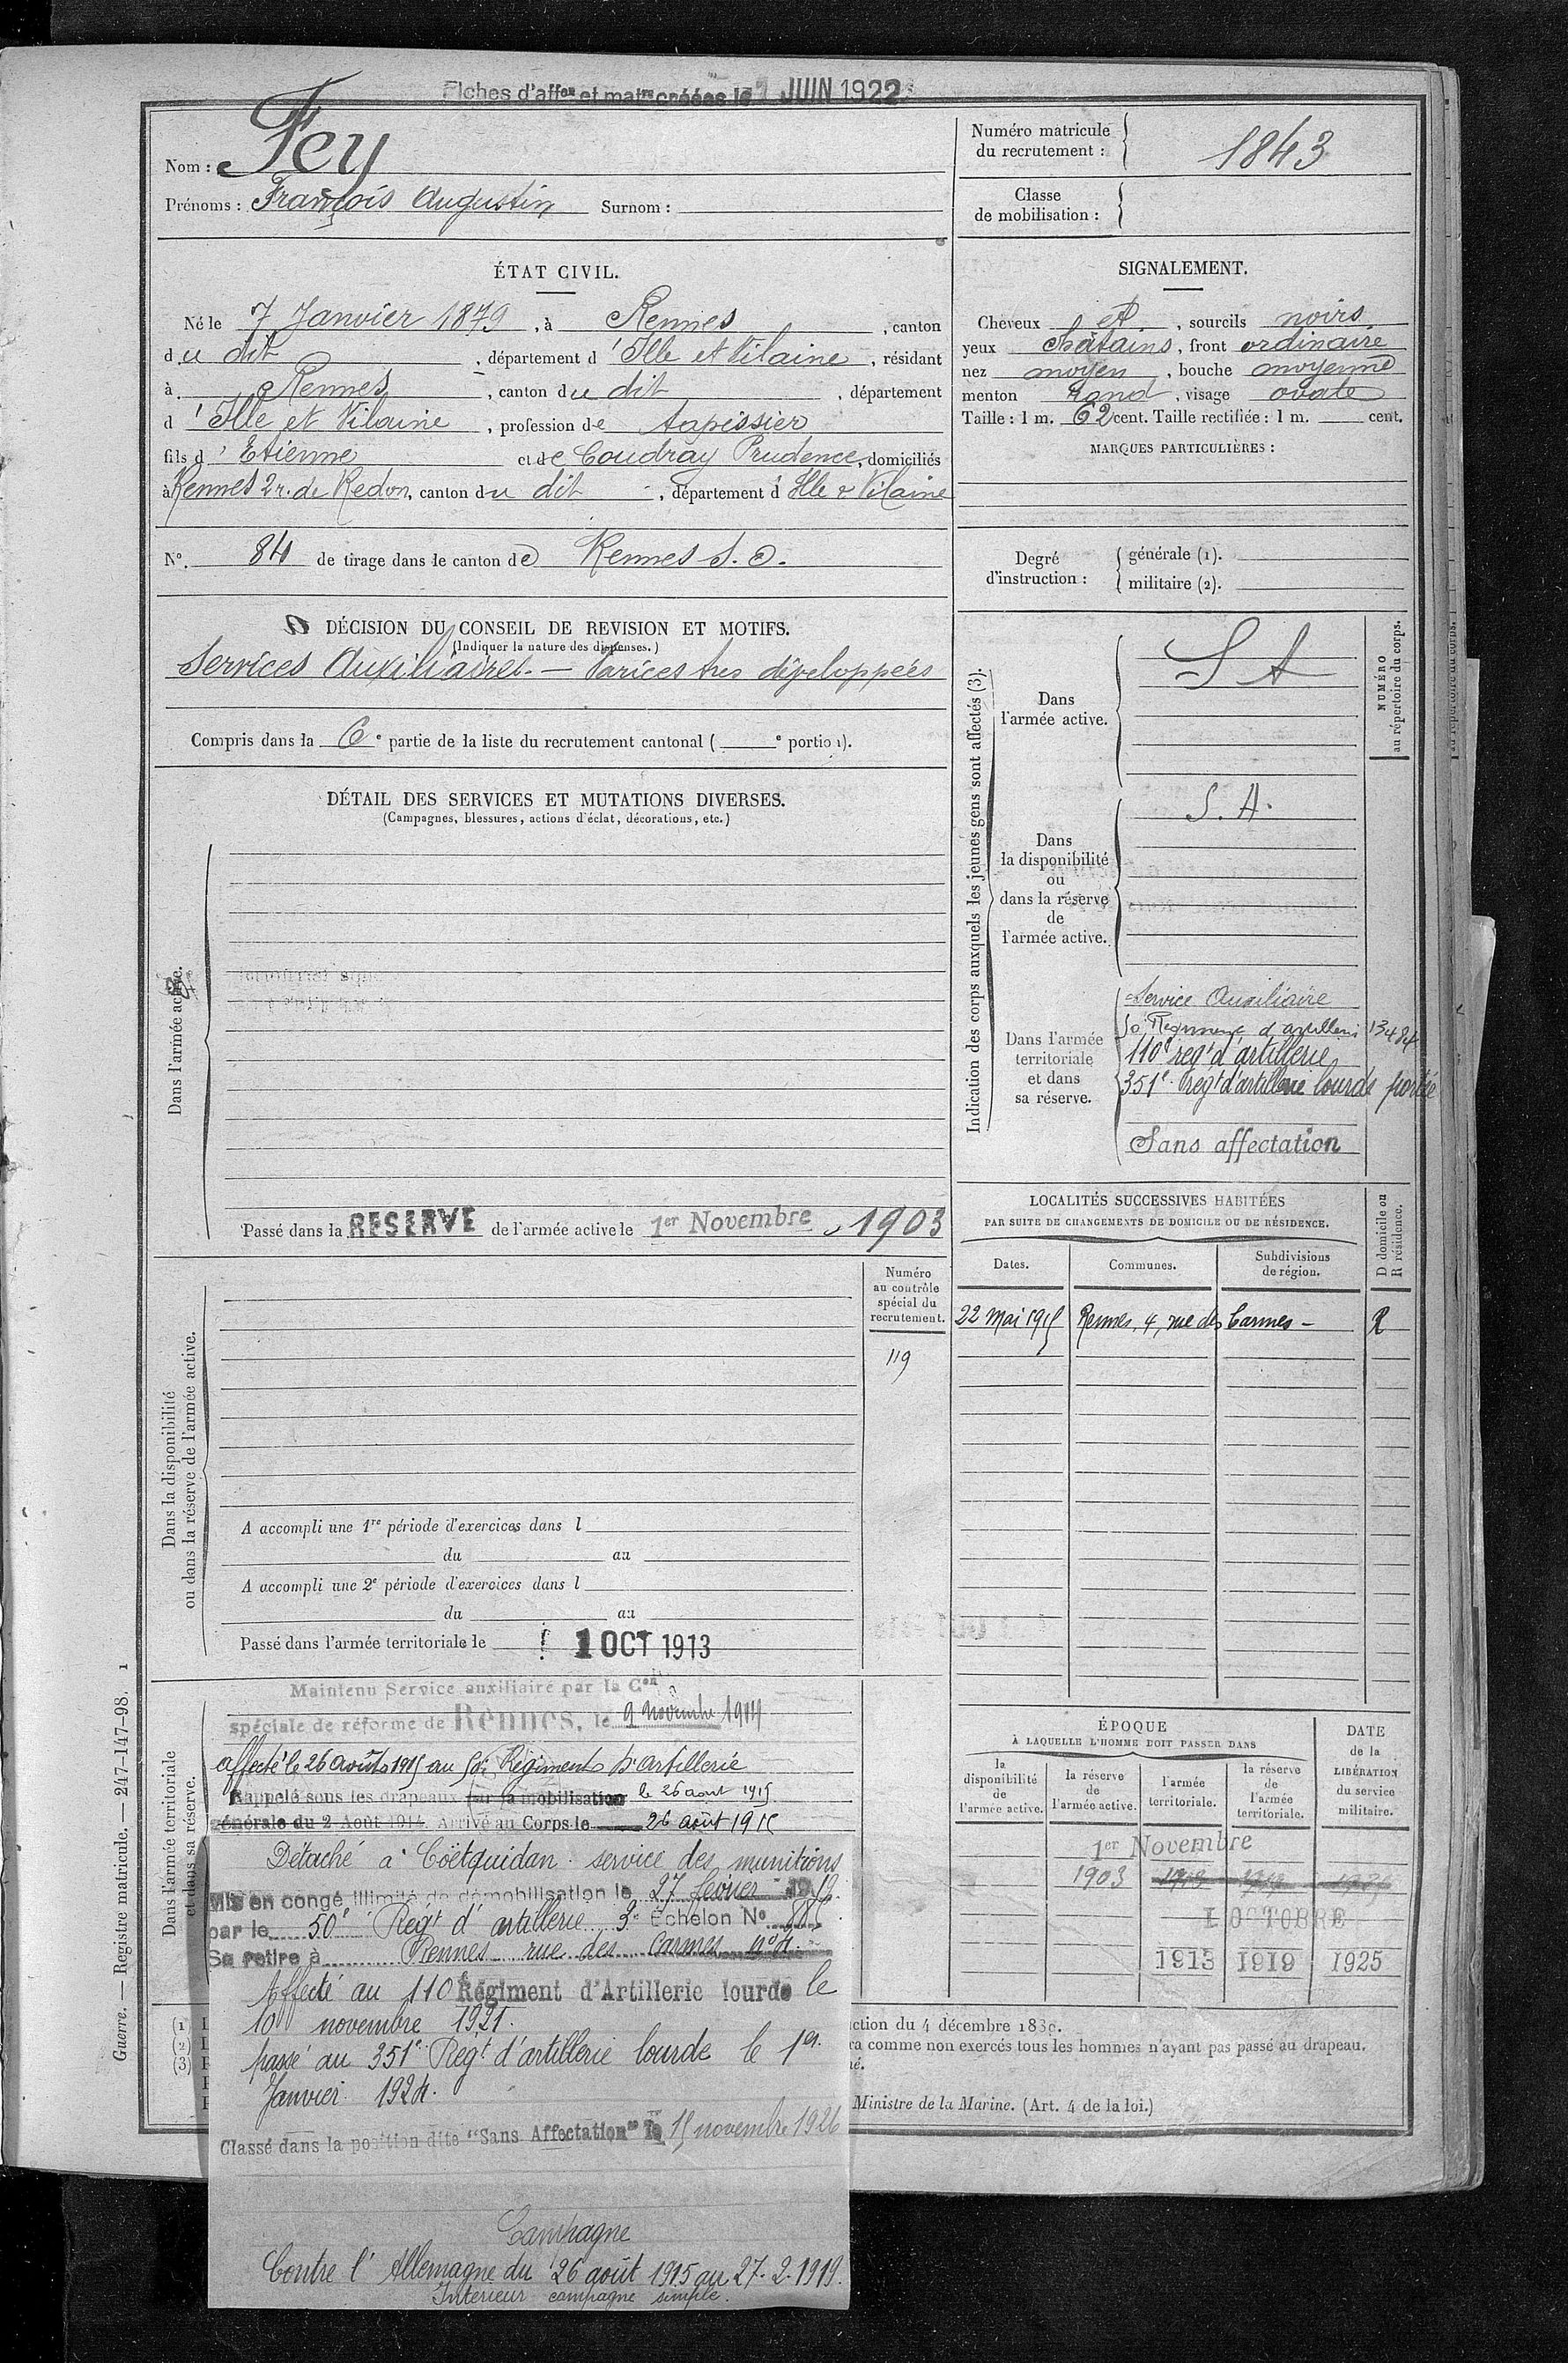 Fiches d'affon et matre créées le 1 JUIN 1922
Nom : Fey
Prénoms : François Augustin Surnom :
Numéro matricule du recrutement : 1843
Classe de mobilisation :
ÉTAT CIVIL.
Né le 7 Janvier 1879, à Rennes, canton
du dit, département d'Ille et Vilaine, résidant
à Rennes, canton du dit, département
d'Ille et Vilaine, profession de tapissier
fils d'Etienne et de Coudray Prudence, domiciliés
à Rennes 2 r. de Redon, canton du dit, département d'Ille & Vilaine
N°. 84 de tirage dans le canton de Rennes S. O.
SIGNALEMENT.
Cheveux et, sourcils noirs
yeux châtains, front ordinaire
nez moyen, bouche moyenne
menton rond, visage ovale
Taille : 1 m. 62 cent. Taille rectifiée : 1 m. cent.
MARQUES PARTICULIÈRES :
Degré d'instruction :
générale (1).
militaire (2).
DÉCISION DU CONSEIL DE REVISION ET MOTIFS.
(Indiquer la nature des dispenses.)
Services Auxiliaires. — Varices très développées
Compris dans la 6e partie de la liste du recrutement cantonal ( e portion).
DÉTAIL DES SERVICES ET MUTATIONS DIVERSES.
(Campagnes, blessures, actions d'éclat, décorations, etc.)
Dans l'armée active.
Passé dans la RESERVE de l'armée active le 1er Novembre 1903
Indication des corps auxquels les jeunes gens sont affectés (3).
NUMÉRO au répertoire du corps.
Dans l'armée active.
S A
Dans la disponibilité ou dans la réserve de l'armée active.
S. A.
Dans l'armée territoriale et dans sa réserve.
Service Auxiliaire
50 Régiment d'artillerie 13484
110e regt d'artillerie
351e regt d'artillerie lourde portée
Sans affectation
LOCALITÉS SUCCESSIVES HABITÉES
PAR SUITE DE CHANGEMENTS DE DOMICILE OU DE RÉSIDENCE.
Dates. Communes. Subdivisions de région. D domicile ou R résidence.
22 Mai 1915 Rennes, 4, rue des Carmes — R
Dans la disponibilité ou dans la réserve de l'armée active.
Numéro au contrôle spécial du recrutement.
119
A accompli une 1re période d'exercices dans l
du au
A accompli une 2e période d'exercices dans l
du au
Passé dans l'armée territoriale le 1 OCT 1913
Dans l'armée territoriale et dans sa réserve.
Maintenu Service auxiliaire par la Con
spéciale de réforme de Rennes, le 9 novembre 1914
affecté le 26 août 1915 au 50e Régiment d'Artillerie
Rappelé sous les drapeaux par la mobilisation le 26 aout 1915
générale du 2 Août 1914. Arrivé au Corps le 26 août 1915
Détaché à Coëtquidan service des munitions
Mis en congé illimité de démobilisation le 27 fevrier 1919.
par le 50e Régt d'artillerie 3e Echelon No
Se retire à Rennes rue des Carmes no 4.
Affecté au 110 Régiment d'Artillerie lourde le
10 novembre 1921.
passé au 351e Regt d'artillerie lourde le 1er
Janvier 1924.
Classé dans la position dite "Sans Affectation" le 15 novembre 1926
Campagne
Contre l'Allemagne du 26 août 1915 au 27.2.1919.
Intérieur campagne simple.
ÉPOQUE
À LAQUELLE L'HOMME DOIT PASSER DANS
la disponibilité de l'armée active. la réserve de l'armée active. l'armée territoriale. la réserve de l'armée territoriale.
DATE de la LIBÉRATION du service militaire.
1er Novembre
1903
1 OCTOBRE
1913 1919 1925
(1)
(2)
(3)
ction du 4 décembre 1889.
ra comme non exercés tous les hommes n'ayant pas passé au drapeau.
né.
Ministre de la Marine. (Art. 4 de la loi.)
Guerre. — Registre matricule. — 247-147-98. 1